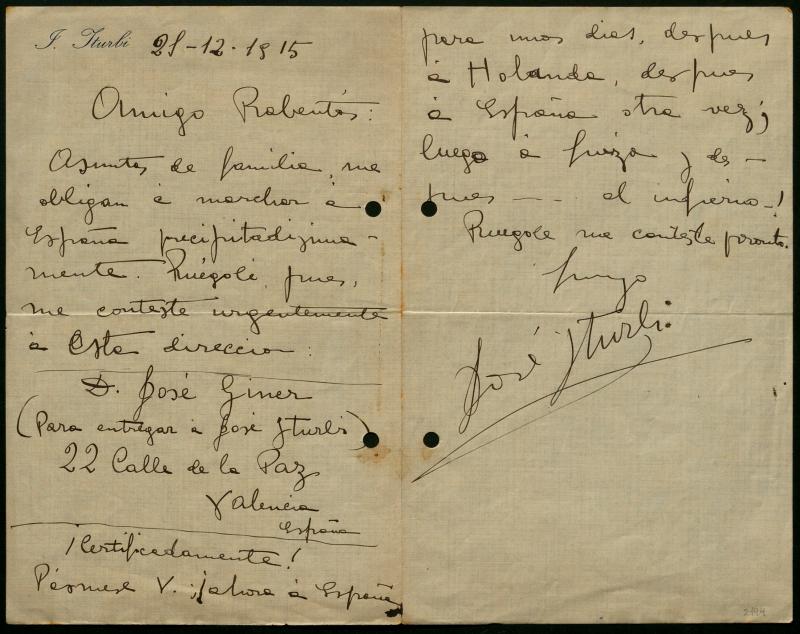 J. Iturbi 21-12-1915
Amigo Rabentós:
Asuntos de familia, me
obligan à marchar à
España precipitadizima-
mente. Ruégole, pues,
me conteste urgentemente
à esta direccion:
D. José Giner
(Para entregar à José Iturbi)
22 Calle de la Paz
Valencia
España
¡Certificadamente!
V. ¡ahora à España
para unos dias, despues
à Holanda, despues
à España otra vez;
luego à Suiza y des-
pues --- al infierno-!
Ruegole me conteste pronto.
Suyo
José Iturbi
2194